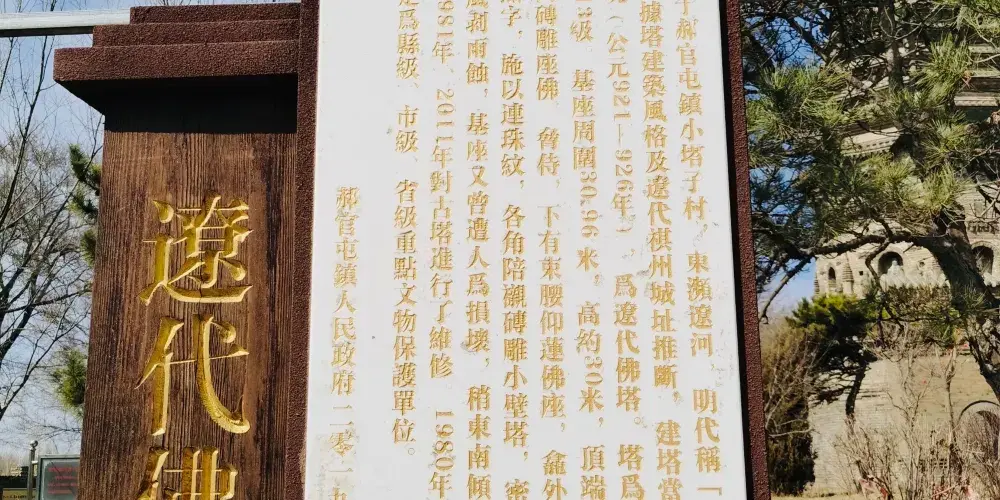 郝官屯鎮小塔子村，東瀕遼河，明代稱「
據塔建築風格及遼代祺州城址推斷，建塔當
(公元921—926年)，爲遼代佛塔。塔爲
3級，基座周圍30.96米，高約30米，頂端
磚雕座佛，脅侍，下有束腰仰蓮佛座，龕外
字，施以連珠紋，各角陪襯磚雕小壁塔，密
風剥雨蝕，基座又曾遭人爲損壞，稍東南傾
981年、2011年對古塔進行了維修 1980年
定爲縣級、市級、省級重點文物保護單位。
郝官屯鎮人民政府二零一九
遼代佛